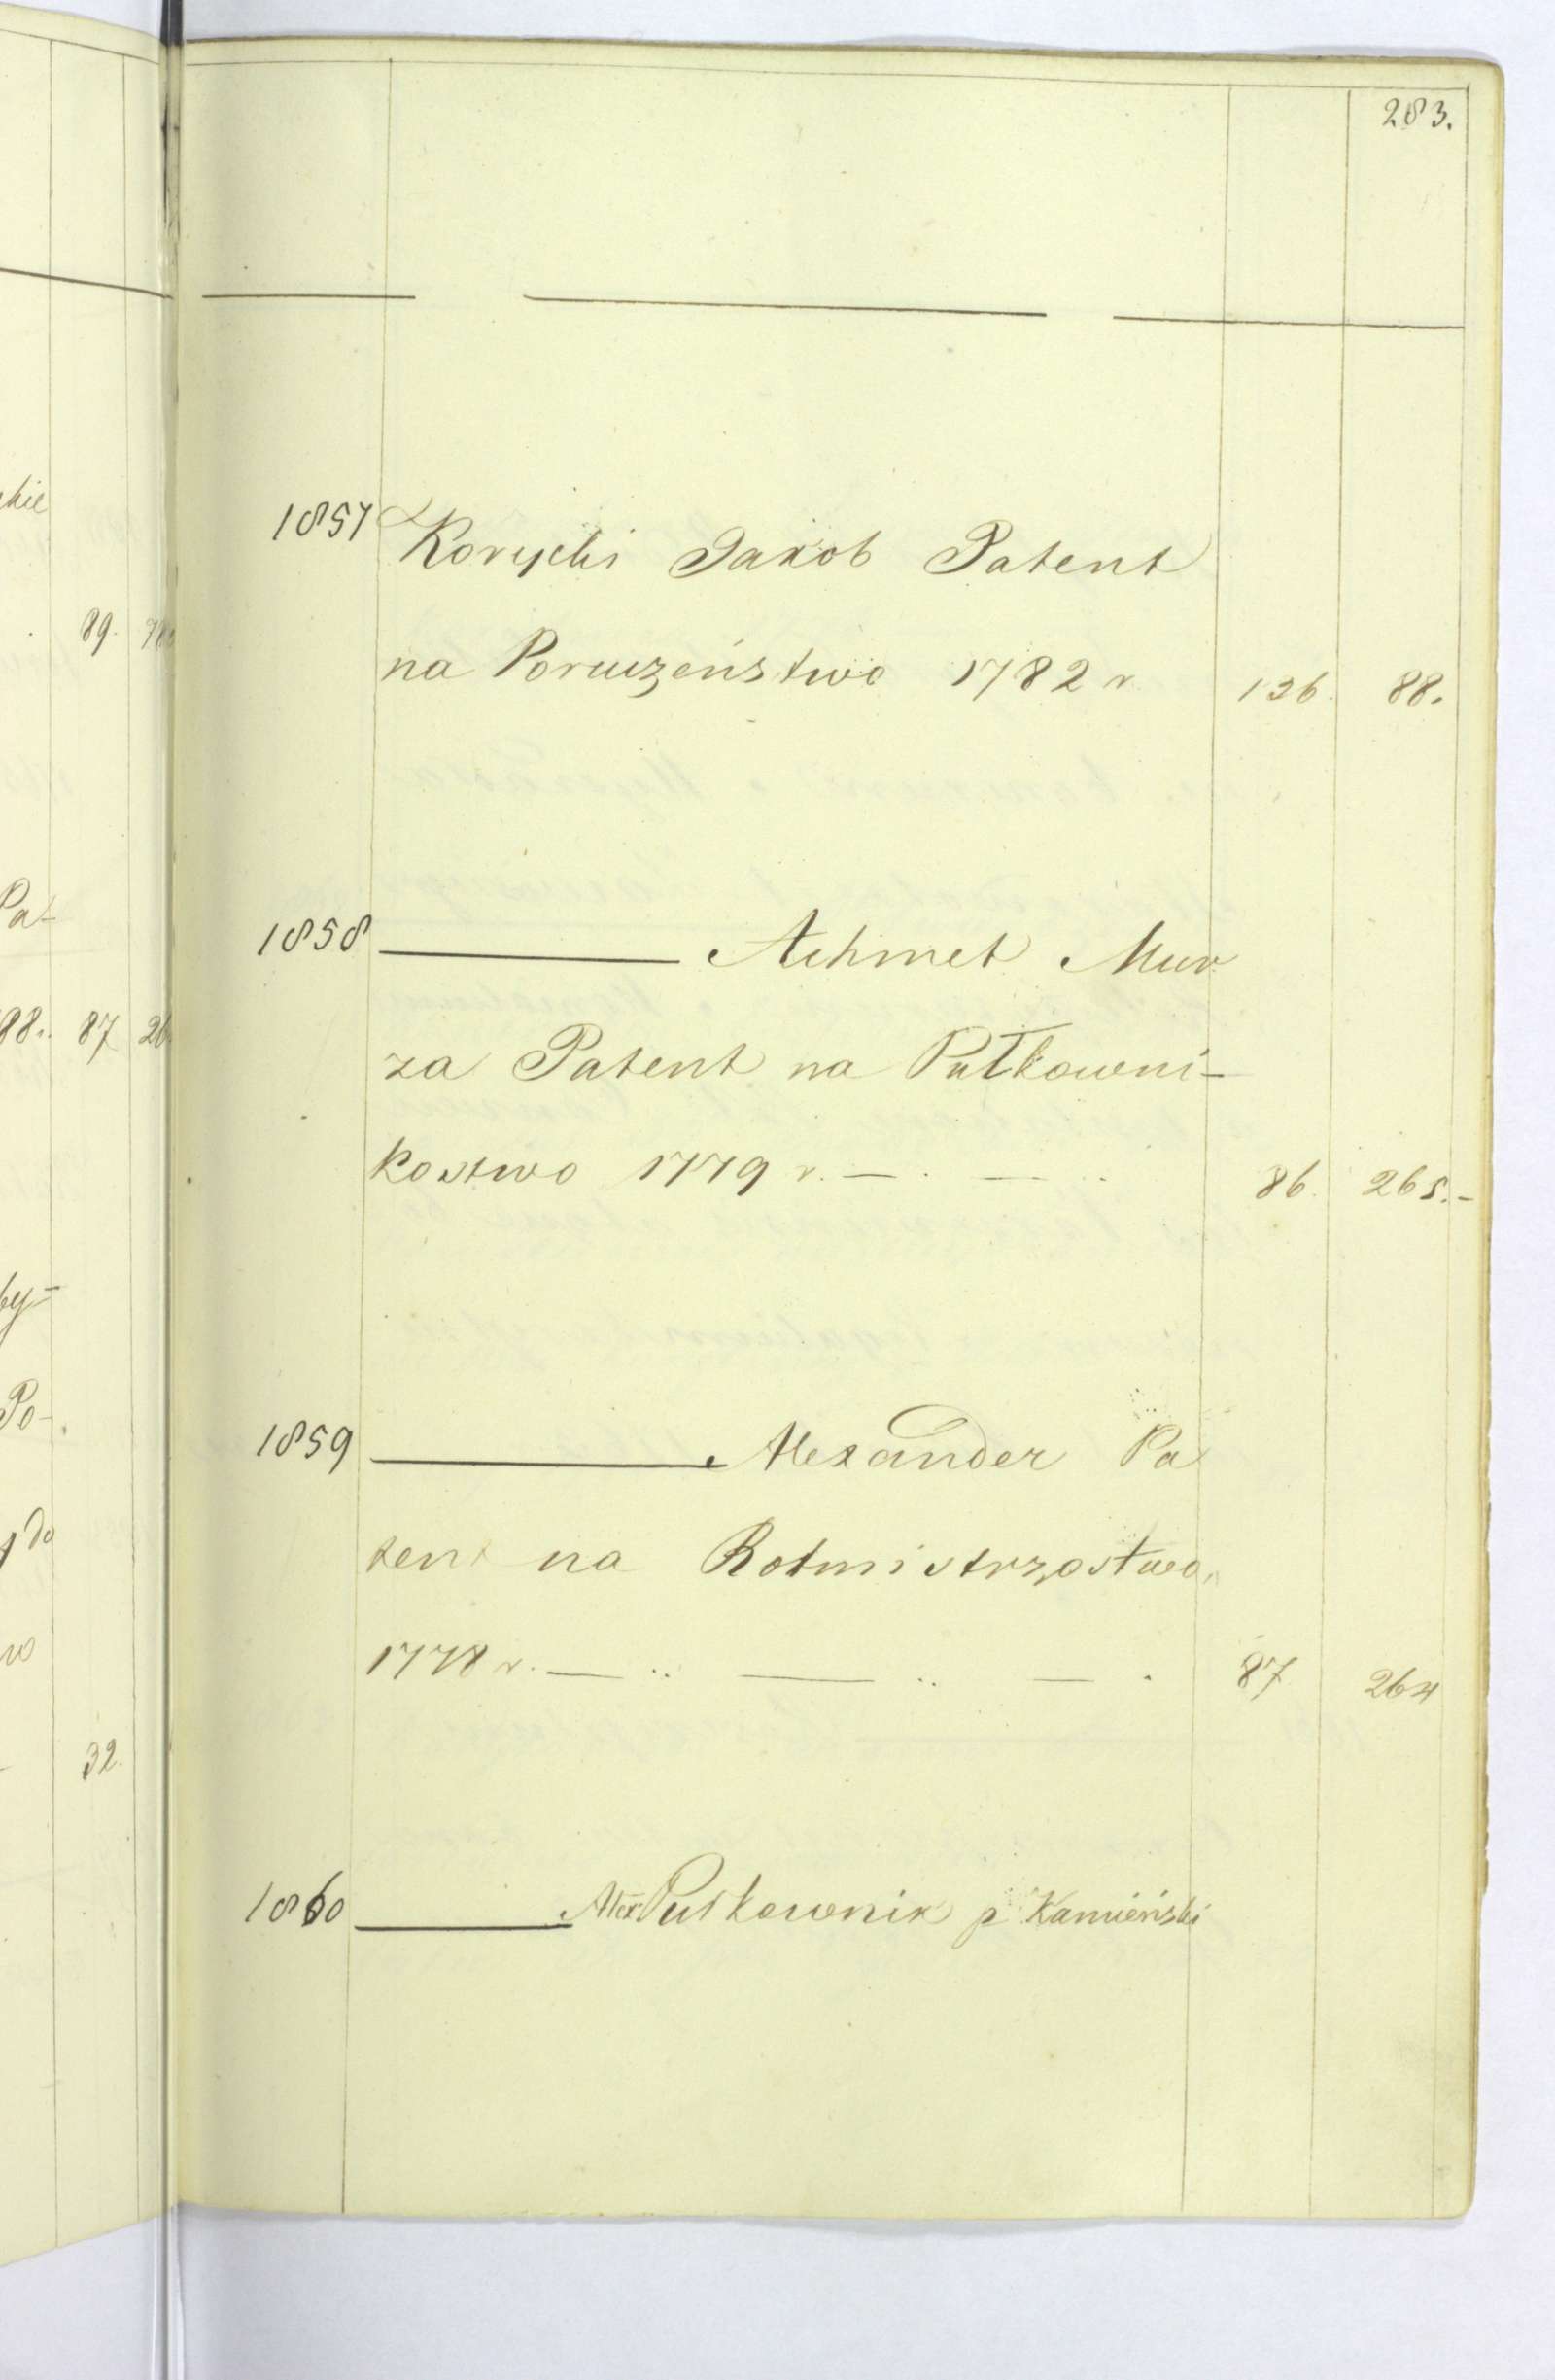 283.
1857 Korycki Jakob Patent
na Poruczeństwo 1782 r 136. 88.
1858 ——— Achmet Mur
za Patent na Pułkowni-
kostwo 1779 r. — . — .. 86. 265.-
1859 ——— Alexander Pa
tent na Rotmistrzostwo.
1778 r. — .. — .. — . 87 264
1860 ——— Alex. Pułkownik p Kamieński
kie
89.
Pa-
88.. 87 26
by-
Po-
do
w
32.